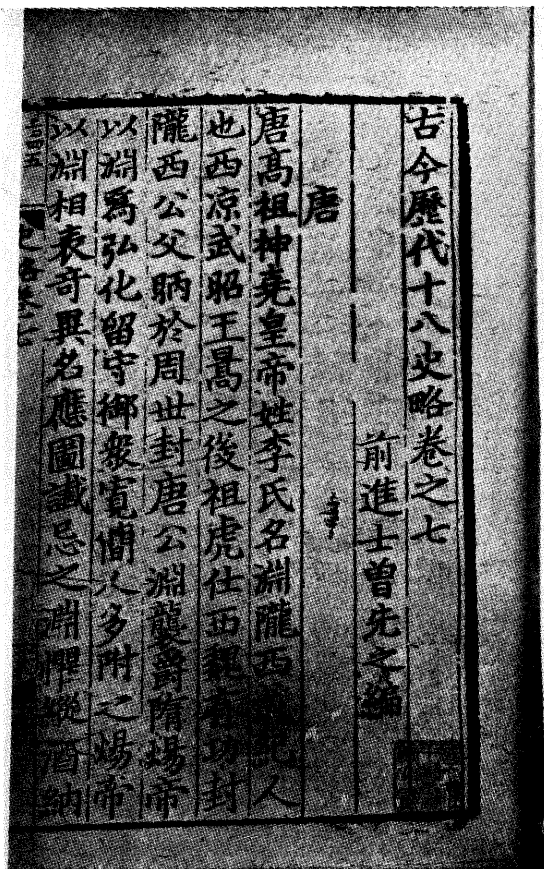 古今歷代十八史略卷之七
前進士曾先之編
唐
唐髙祖神堯皇帝姓李氏名淵隴西成紀人
也西凉武昭王暠之後祖虎仕西魏有功封
隴西公父昞於周世封唐公淵襲爵隋煬帝
以淵爲弘化留守御衆寬簡人多附之煬帝
以淵相表奇異名應圖讖忌之淵懼縱酒納